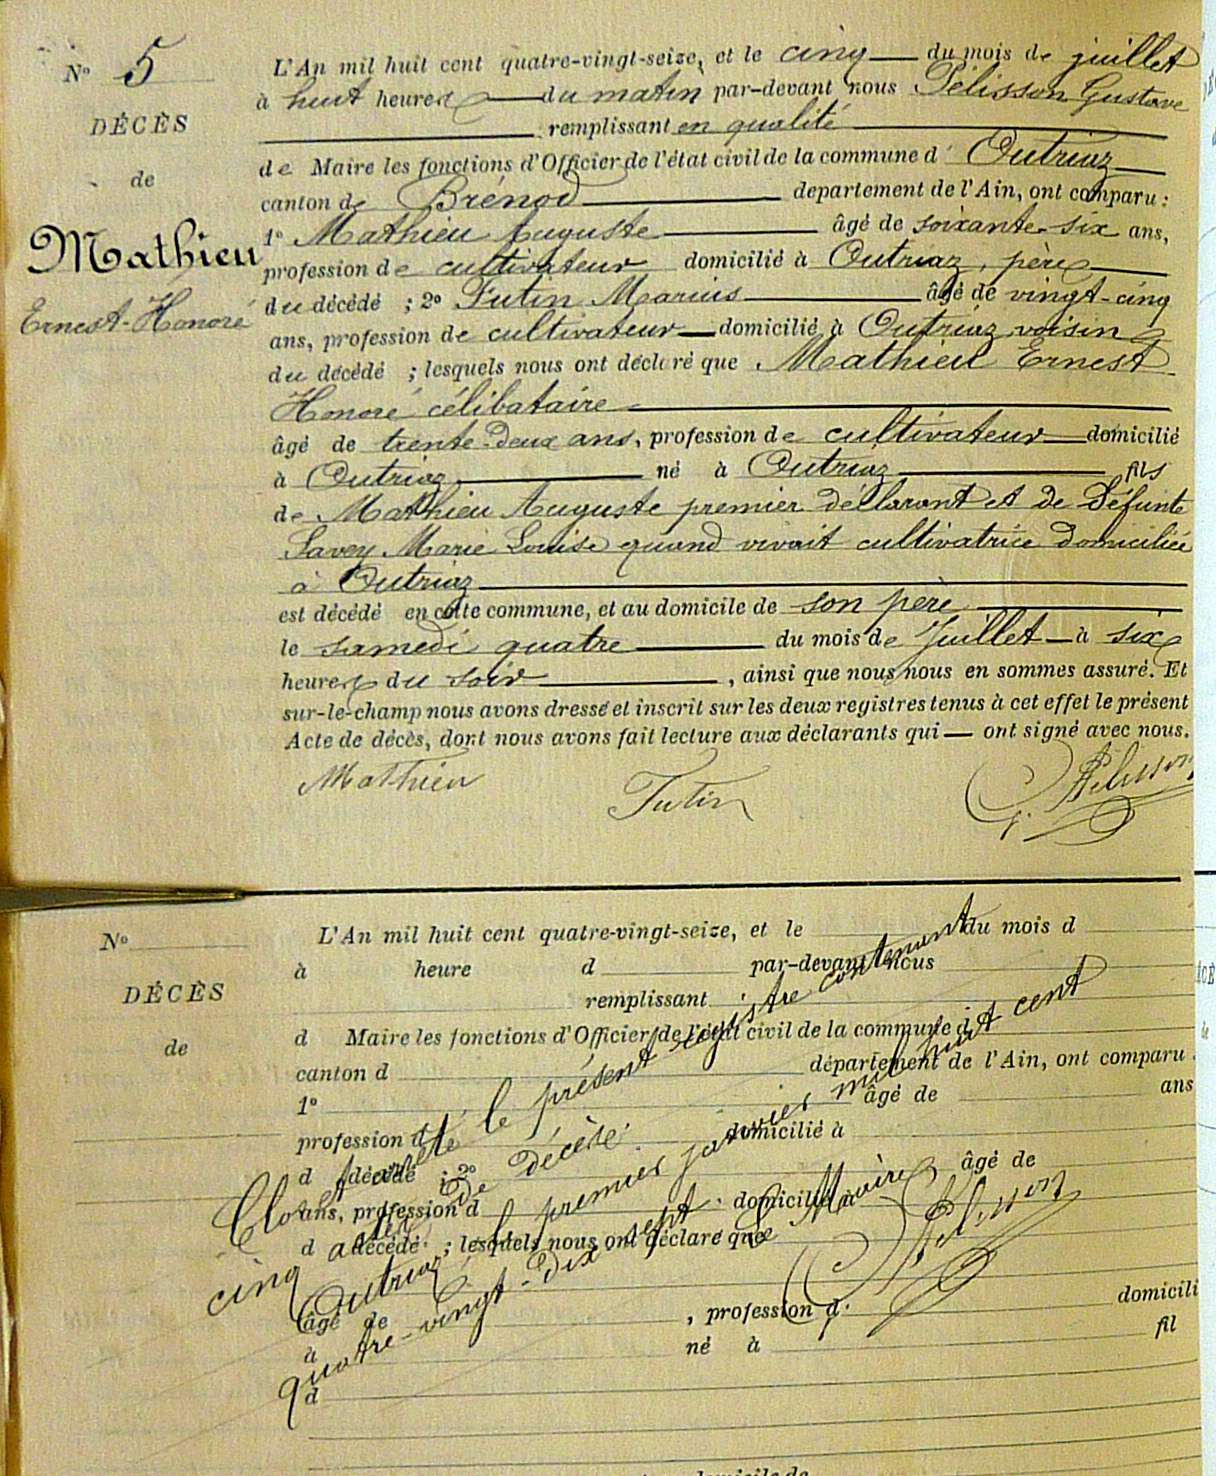 N° 5
DÉCÈS
de
Mathieu
Ernest-Honoré
L'An mil huit cent quatre-vingt-seize, et le cinq du mois de juillet
à huit heures du matin par-devant nous Pélisson Gustave
remplissant en qualité
de Maire les fonctions d'Officier de l'état civil de la commune d' Outriaz
canton de Brénod departement de l'Ain, ont comparu :
1° Mathieu Auguste âgé de soixante-six ans,
profession de cultivateur domicilié à Outriaz, père
du décédé ; 2° Tutin Marius âgé de vingt-cinq
ans, profession de cultivateur domicilié à Outriaz voisin
du décédé ; lesquels nous ont déclaré que Mathieu Ernest
Honoré célibataire
âgé de trente-deux ans, profession de cultivateur domicilié
à Outriaz né à Outriaz fils
de Mathieu Auguste premier déclarant et de Défunte
Savey Marie Louise quand vivait cultivatrice domiciliée
à Outriaz
est décédé en cette commune, et au domicile de son père
le samedi quatre du mois de Juillet à six
heures du soir , ainsi que nous nous en sommes assuré. Et
sur-le-champ nous avons dressé et inscrit sur les deux registres tenus à cet effet le présent
Acte de décès, dont nous avons fait lecture aux déclarants qui ont signé avec nous.
Mathieu Tutin G. Pélisson
N°
DÉCÈS
de
L'An mil huit cent quatre-vingt-seize, et le du mois d
à heure d par-devant nous
remplissant
d Maire les fonctions d'Officier de l'état civil de la commune d
canton d département de l'Ain, ont comparu
1° âgé de ans
profession d domicilié à
d décédé ; 2° âgé de
ans, profession d domicilié à
d décédé ; lesquels nous ont déclaré que
âgé de , profession d domicili
à né à fil
d
Clos et arrêté le présent registre contenant
cinq actes de décès.
Outriaz, le premier janvier mil huit cent
quatre-vingt-dix-sept. Le Maire
G. Pélisson
domicile de